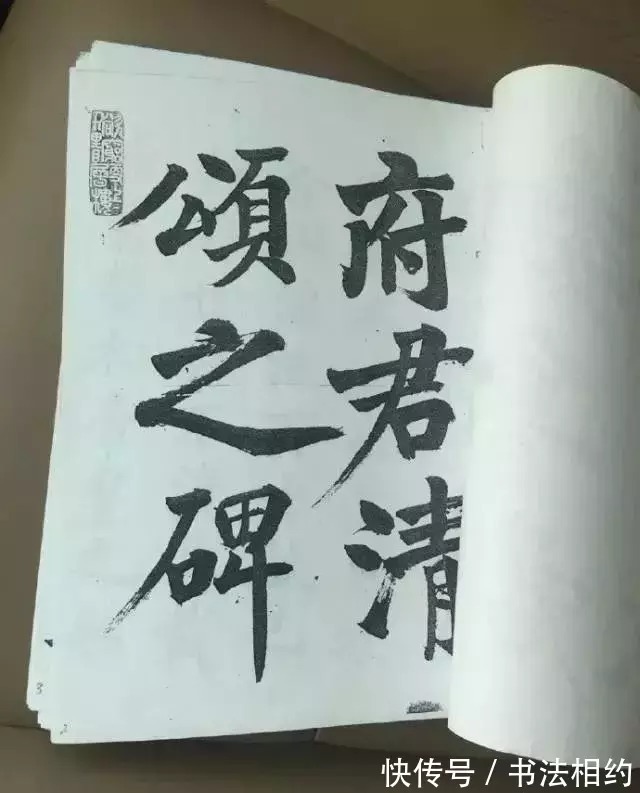 府君清
頌之碑
3
2
快传号 / 书法相约